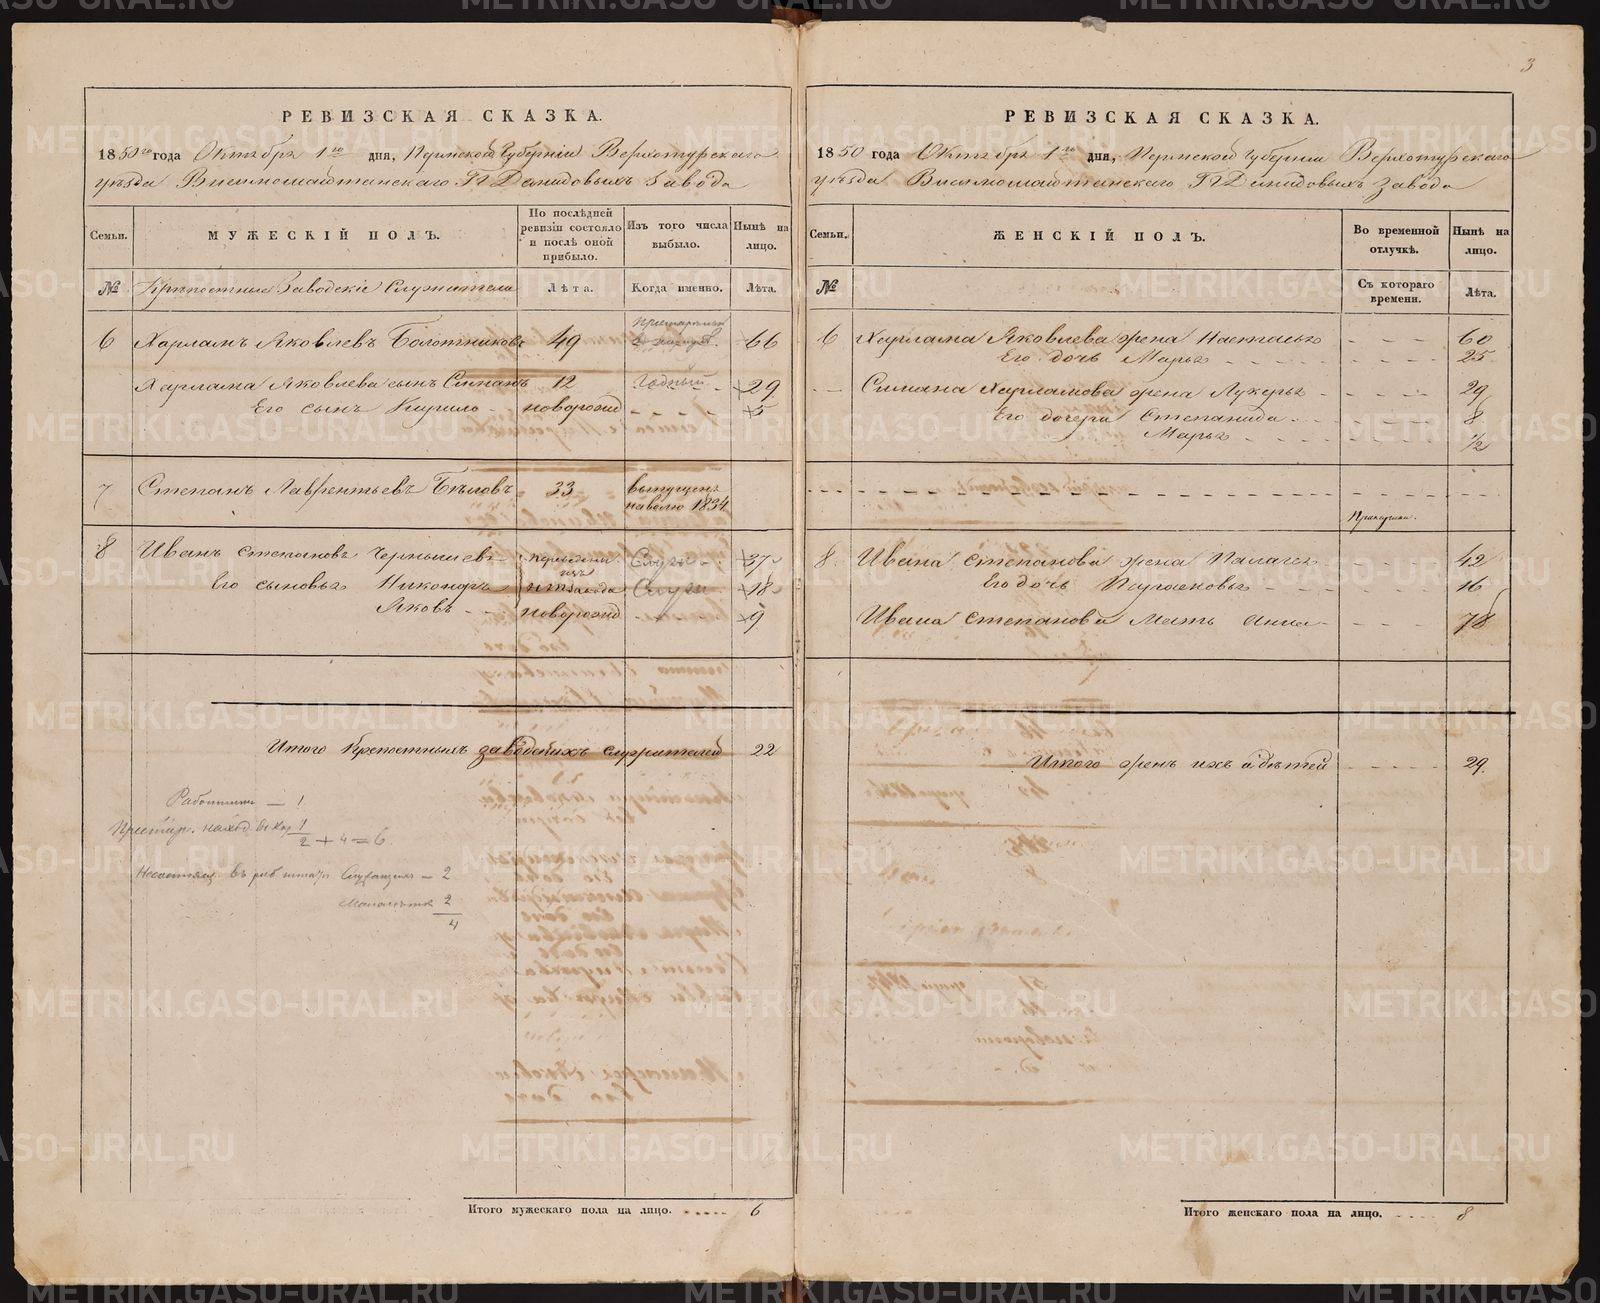 3
РЕВИЗСКАЯ СКАЗКА.
1850го года Октября 1го дня, Пермской Губерніи Верхотурскаго
уѣзда Висимошайтанскаго Г.г. Демидовыхъ завода
Семьи.
МУЖЕСКІЙ ПОЛЪ.
По послѣдней ревизіи состояло и послѣ оной прибыло.
Изъ того числа выбыло.
Нынѣ на лицо.
№ Крѣпостные Заводскіе Служители
Лѣта.
Когда именно.
Лѣта.
6 Харламъ Яковлевъ Болотниковъ 49 66
Харлама Яковлева сынъ Симанъ 12 Годный 29
Его сынъ Кирило новорожд 5
7 Степанъ Лаврентьевъ Бѣловъ 33 выпущенъ на волю 1834
8 Иванъ Степановъ Чернышевъ 37
Его сыновья Никоноръ 18
Яковъ новорожд 9
Итого Крепостныхъ заводскихъ служителей 22
Работники — 1
2 + 4 = 6
2
2
4
Итого мужескаго пола на лицо. 6
РЕВИЗСКАЯ СКАЗКА.
1850 года Октября 1го дня, Пермской Губерніи Верхотурскаго
уѣзда Висимошайтанскаго Г.г. Демидовыхъ завода
Семьи.
ЖЕНСКІЙ ПОЛЪ.
Во временной отлучкѣ.
Нынѣ на лицо.
№
Съ котораго времени.
Лѣта.
6 Харлама Яковлева жена Настасья 60
Его дочь Марья 25
Симана Харламова жена Лукерья 29
Его дочери Степанида 8
Марья 1/2
8 Ивана Степанова жена Палагея 42
Его дочь Парасковья 16
Ивана Степанова Мать Анна 78
Итого женъ ихъ и дѣтей 29.
Итого женскаго пола на лицо. 8
METRIKI.GASO-URAL.RU